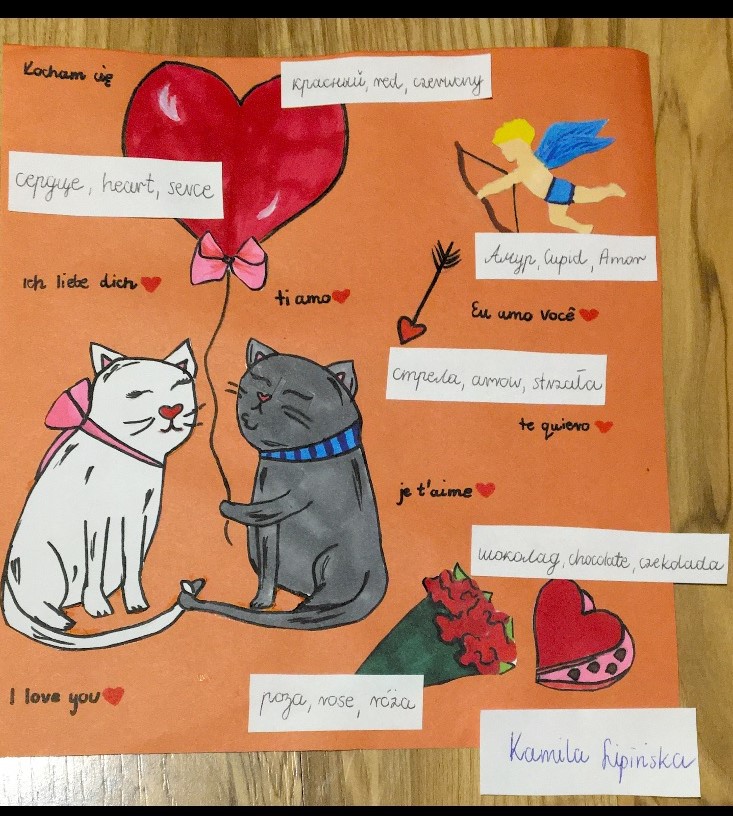 Kocham cię
красный, red, czerwony
сердце, heart, serce
Амур, Cupid, Amor
Ich liebe dich
ti amo
Eu amo você
стрела, arrow, strzała
te quiero
je t'aime
шоколад, chocolate, czekolada
I love you
роза, rose, róża
Kamila Lipińska